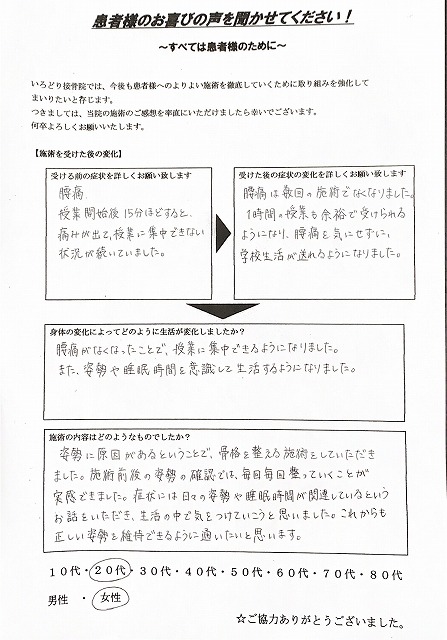 患者様のお喜びの声を聞かせてください！
～すべては患者様のために～
いろどり接骨院では、今後も患者様へのよりよい施術を徹底していくために取り組みを強化して
まいりたいと存じます。
つきましては、当院の施術のご感想を率直にいただけましたら幸いでございます。
何卒よろしくお願いいたします。
【施術を受けた後の変化】
受ける前の症状を詳しくお願い致します
腰痛。
授業開始後15分ほどすると、
痛みが出て、授業に集中できない
状況が続いていました。
受けた後の症状の変化を詳しくお願い致します
腰痛は数回の施術でなくなりました。
1時間の授業も余裕で受けられる
ようになり、腰痛を気にせずに、
学校生活が送れるようになりました。
身体の変化によってどのように生活が変化しましたか？
腰痛がなくなったことで、授業に集中できるようになりました。
また、姿勢や睡眠時間を意識して生活するようになりました。
施術の内容はどのようなものでしたか？
姿勢に原因があるということで、骨格を整える施術をしていただき
ました。施術前後の姿勢の確認では、毎回毎回整っていくことが
実感できました。症状には日々の姿勢や睡眠時間が関連しているという
お話をいただき、生活の中で気をつけていこうと思いました。これからも
正しい姿勢を維持できるように通いたいと思います。
10代・20代・30代・40代・50代・60代・70代・80代
男性 ・ 女性
☆ご協力ありがとうございました。